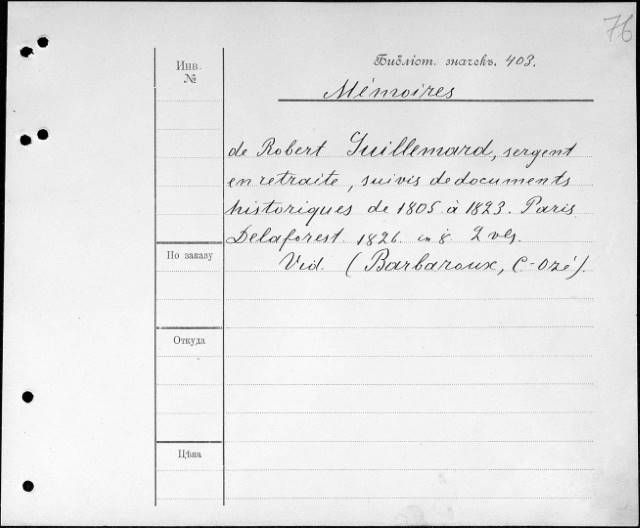 76
Инв. №
Библіот. значекъ. 403.
Mémoires
de Robert Guillemard, sergent
en retraite, suivis de documents
historiques de 1805 à 1823. Paris
Delaforest 1826. in 8. 2 vls.
По заказу
Vid. (Barbaroux, C-Ozé).
Откуда
Цѣна